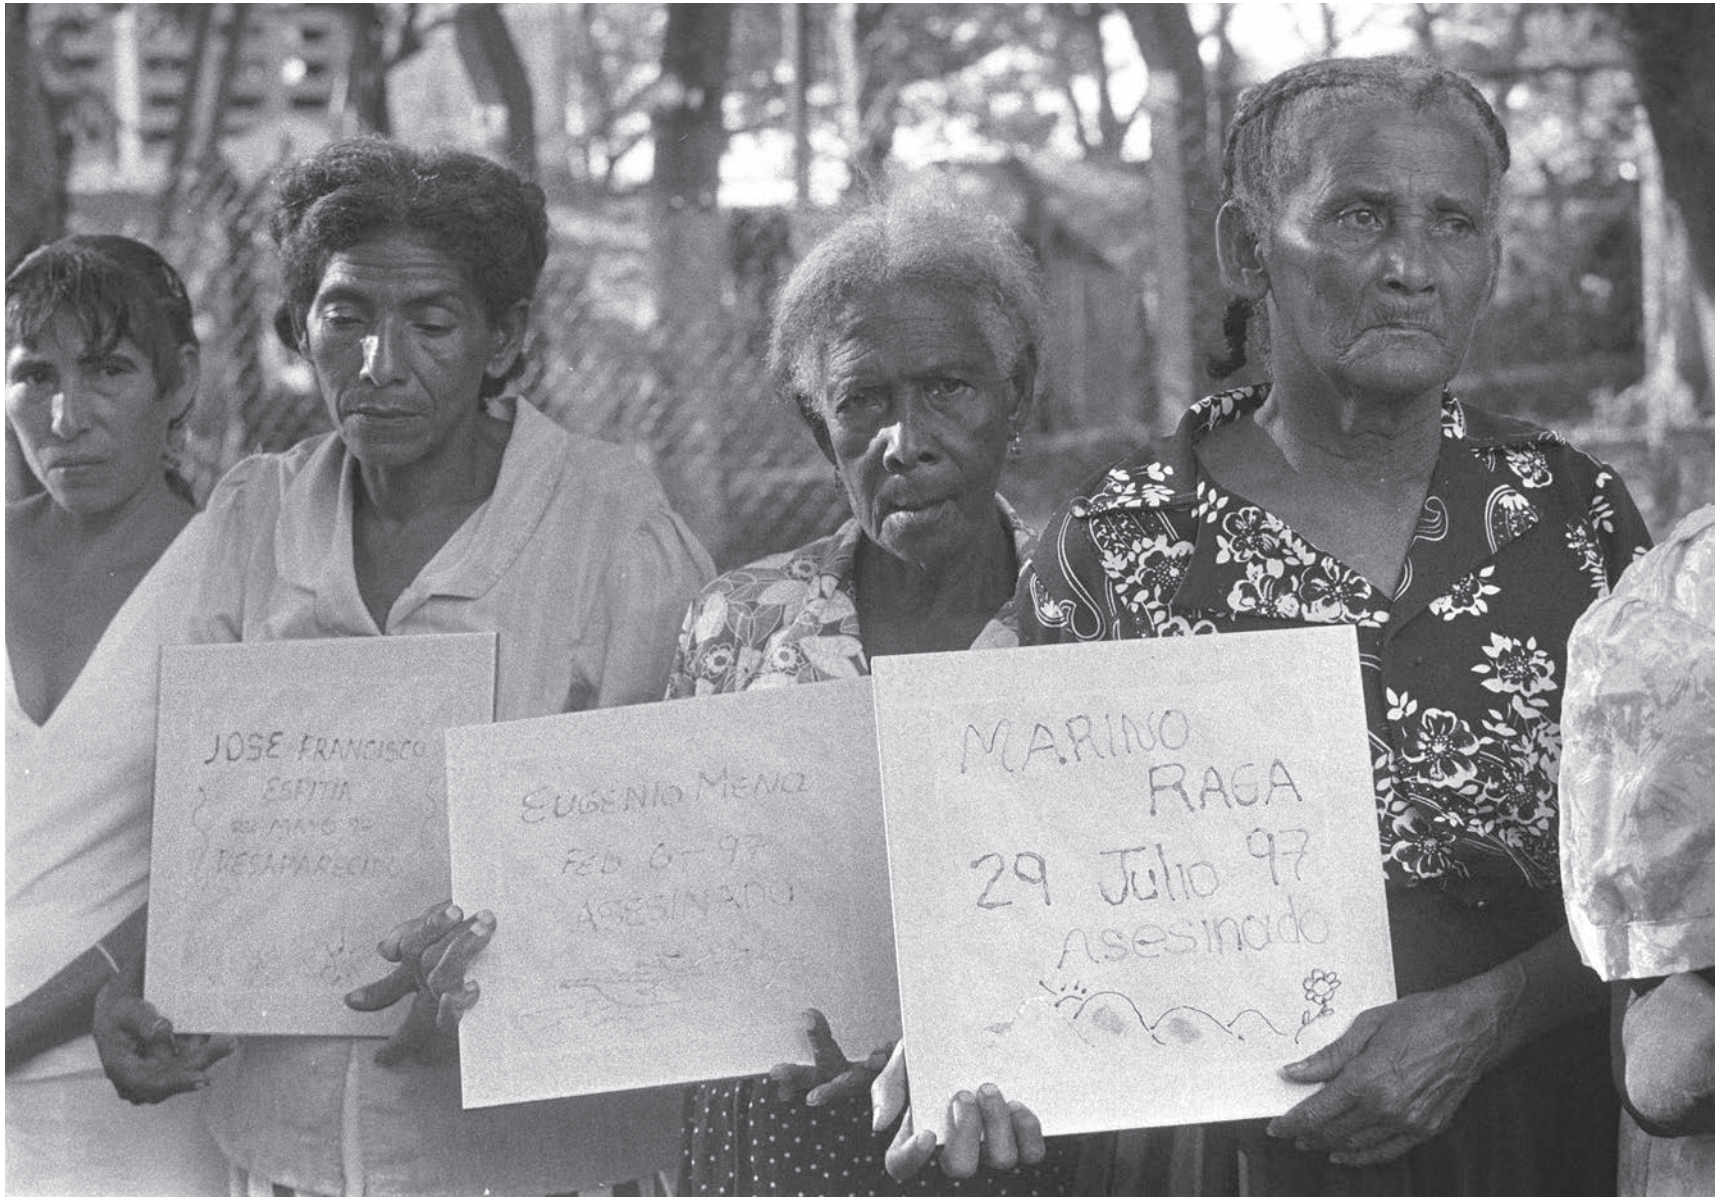 JOSE FRANCISCO
ESPITIA
22 MAYO 9
DESAPARECIDO
EUGENIO MENA
FEB 6 97
ASESINADO
MARINO
RAGA
29 Julio 97
Asesinado